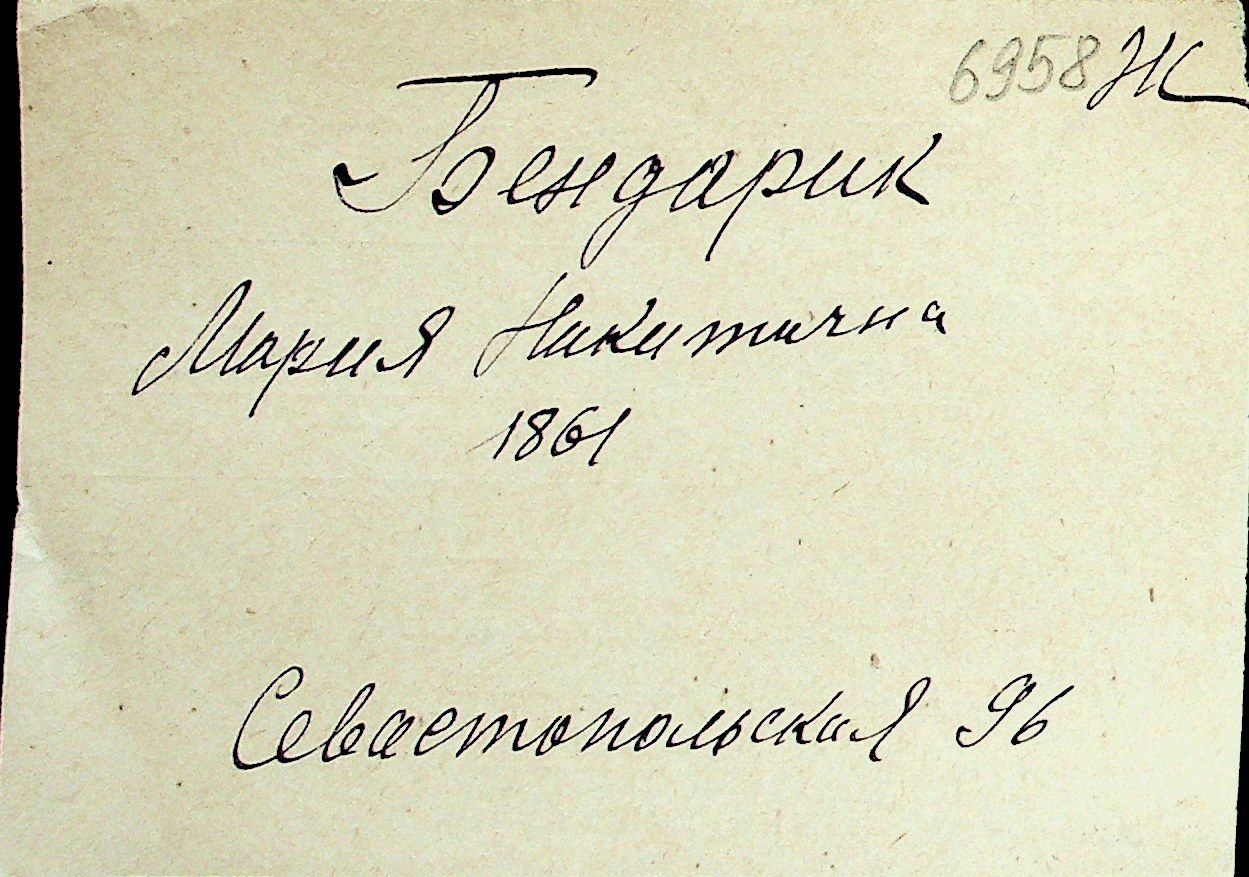 6958 Ж
Бендарик
Мария Никитична
1861
Севастопольская 96